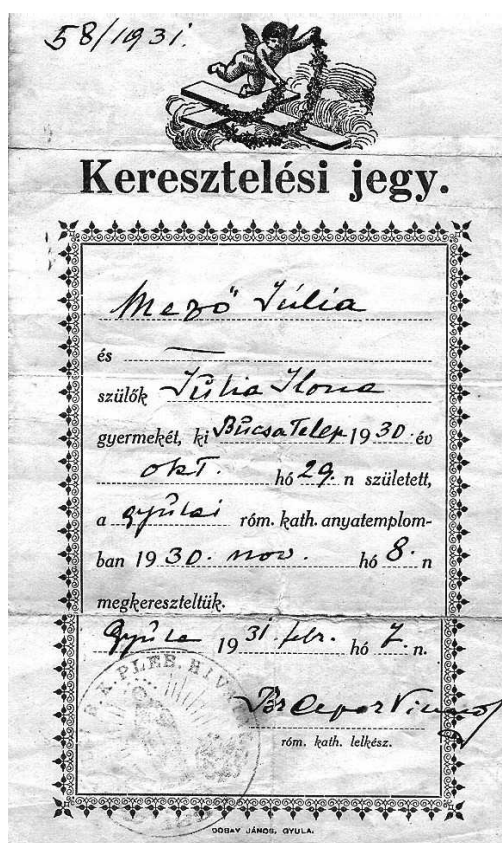 58/1931.
Keresztelési jegy.
Mező Júlia
és —
szülők Júlia Ilona
gyermekét, ki Bucsatelep 1930 év
okt. hó 29. n született,
a gyulai róm. kath. anyatemplom-
ban 1930. nov. hó 8. n
megkereszteltük.
Gyula 1931. febr. hó 7. n.
róm. kath. lelkész.
R. K. PLEB. HIV
DOBAY JÁNOS, GYULA.